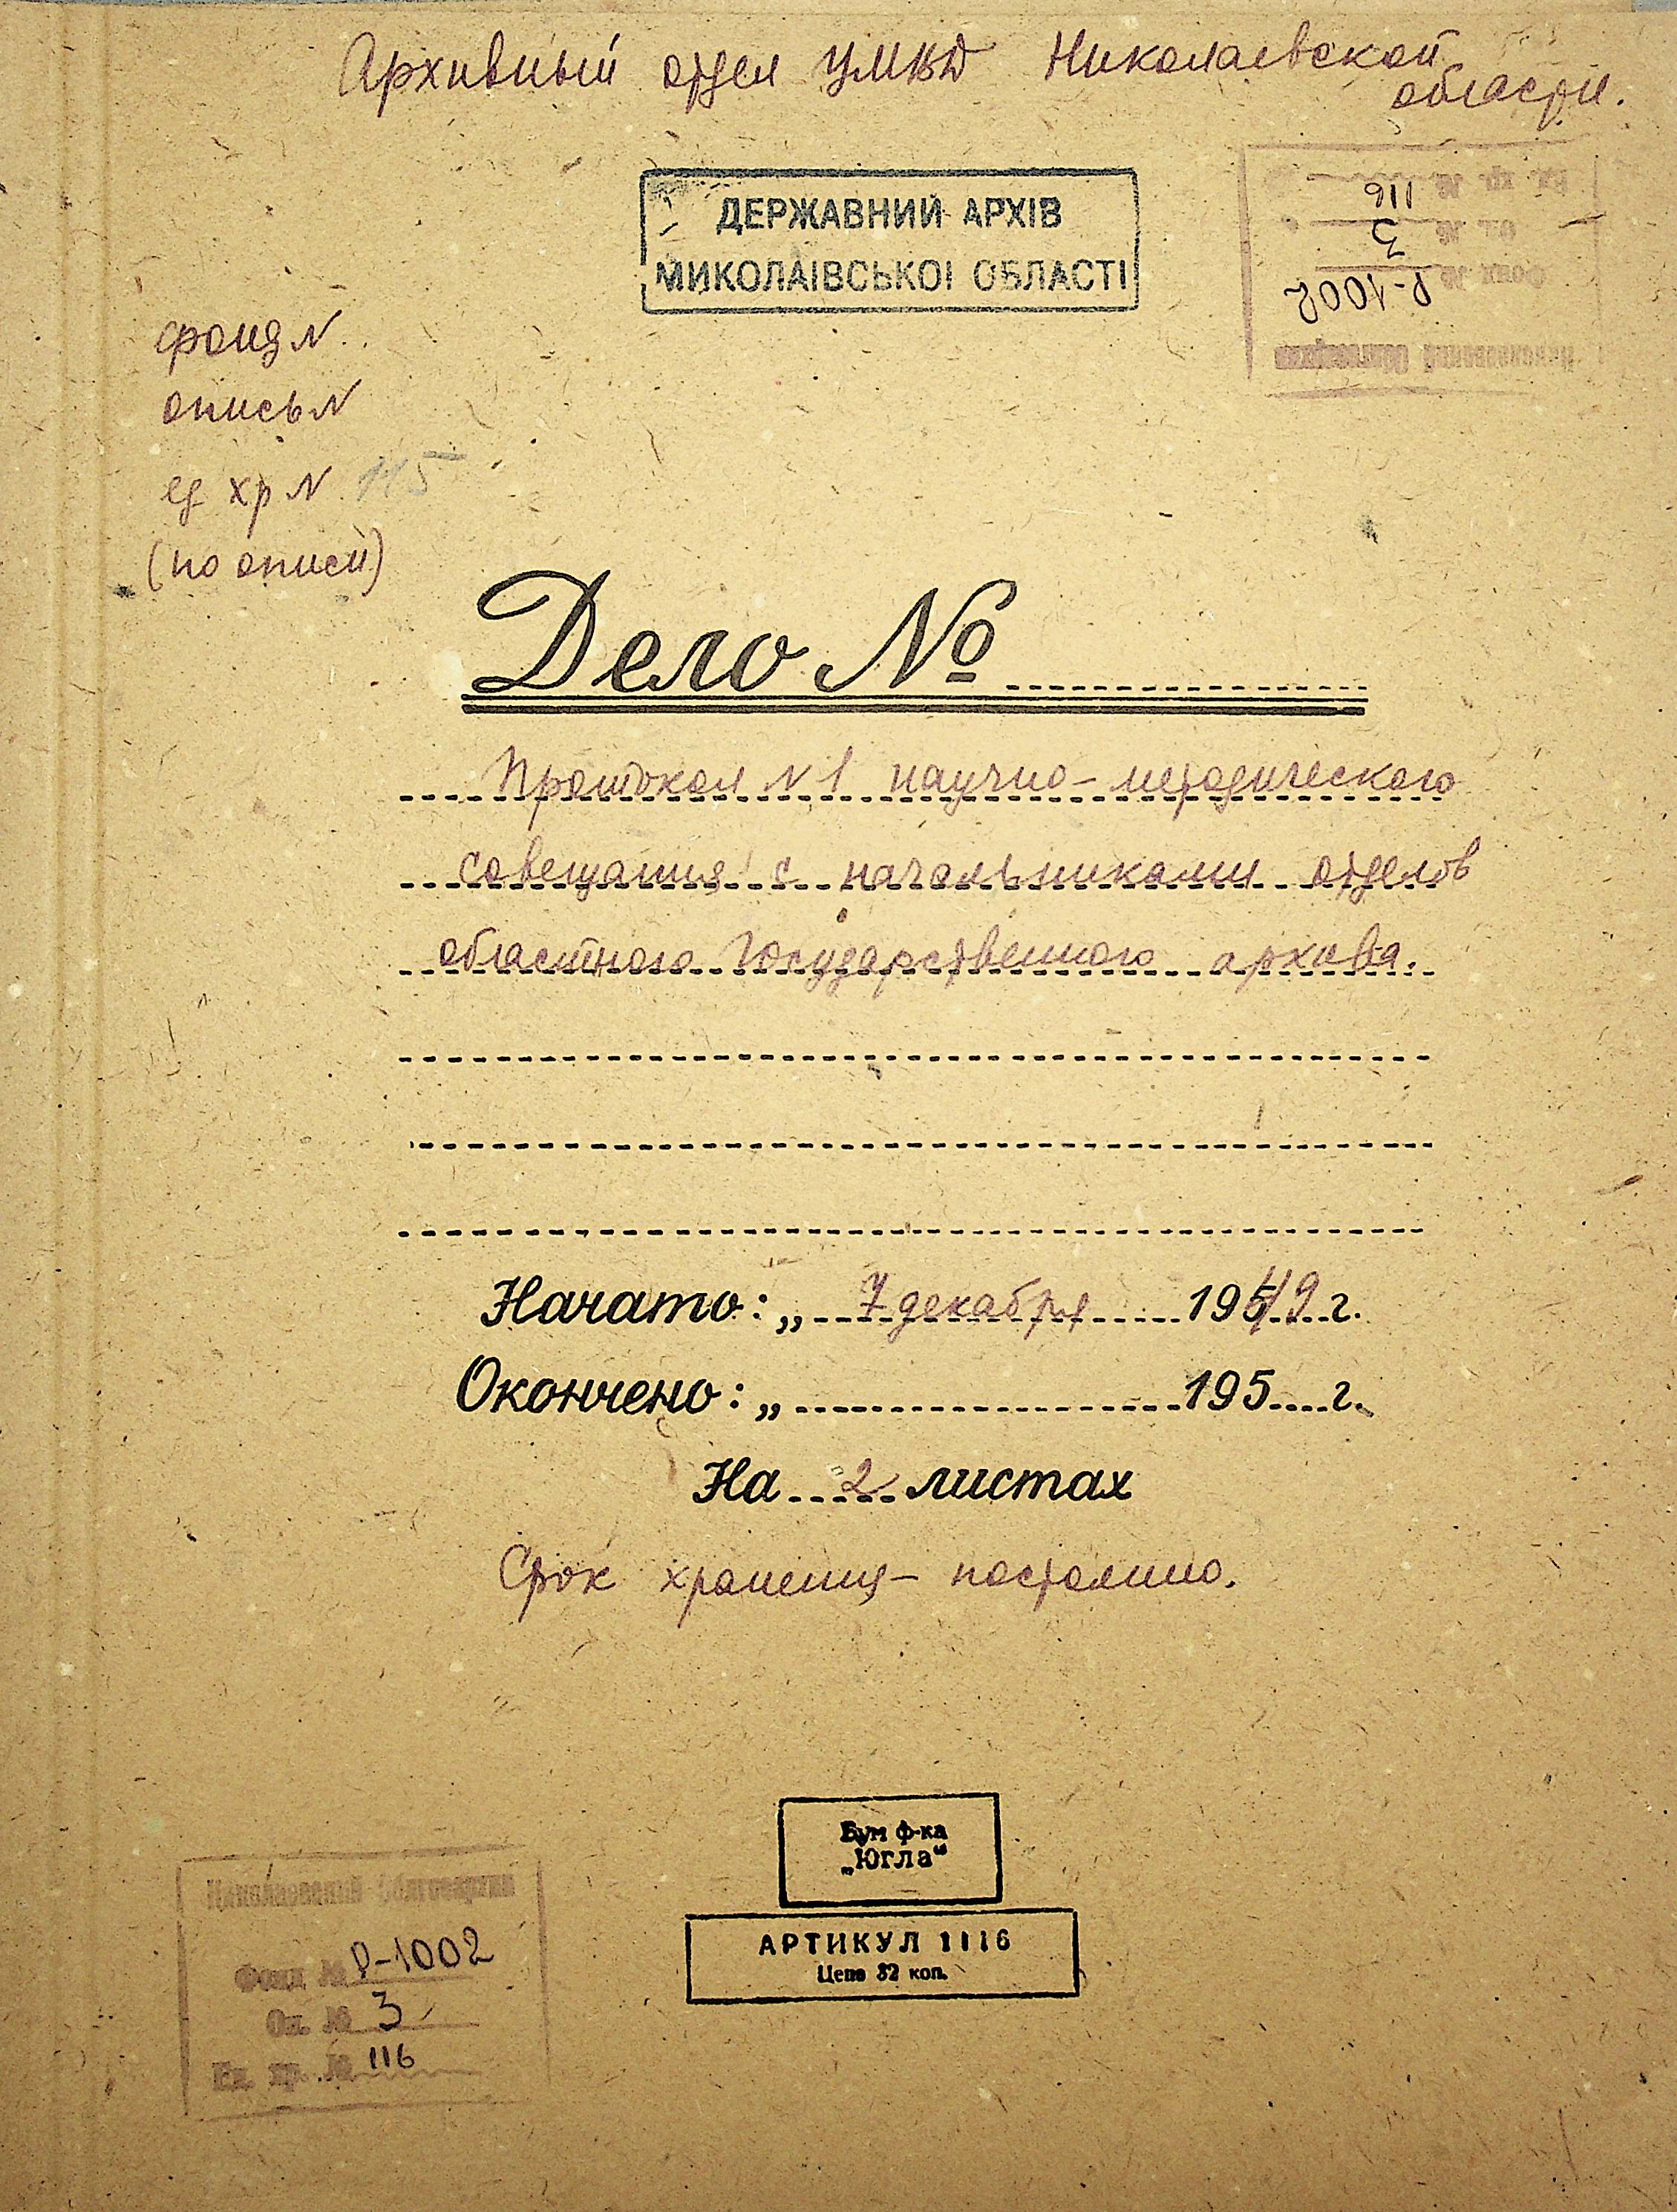 Архивный отдел УМВД Николаевской
области.
ДЕРЖАВНИЙ АРХІВ
МИКОЛАЇВСЬКОЇ ОБЛАСТІ
Ед. хр. № 116
Оп. № 3
Фонд № Р-1002
Николаевский Облгосархив
фонд N
опись N
ед хр N 115
(по описи)
Дело №
Протокол N 1 научно-методического
совещания с начальниками отделов
областного Государственного архива.
Начато: „ 7 декабря 1949 г.
Окончено: „ 195 г.
На 2 листах
Срок хранения - постоянно.
Бум ф-ка
„Югла“
АРТИКУЛ 1116
Цена 82 коп.
Николаевский Облгосархив
Фонд № Р-1002
Оп. № 3
Ед. хр. № 116